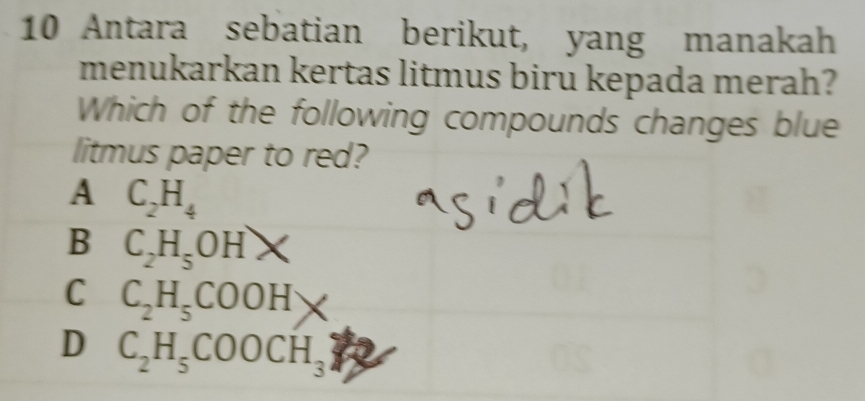 10 Antara sebatian berikut, yang manakah
menukarkan kertas litmus biru kepada merah?
Which of the following compounds changes blue
litmus paper to red?
A C₂H₄
asidik
B C₂H₅OH X
C C₂H₅COOH X
D C₂H₅COOCH₃